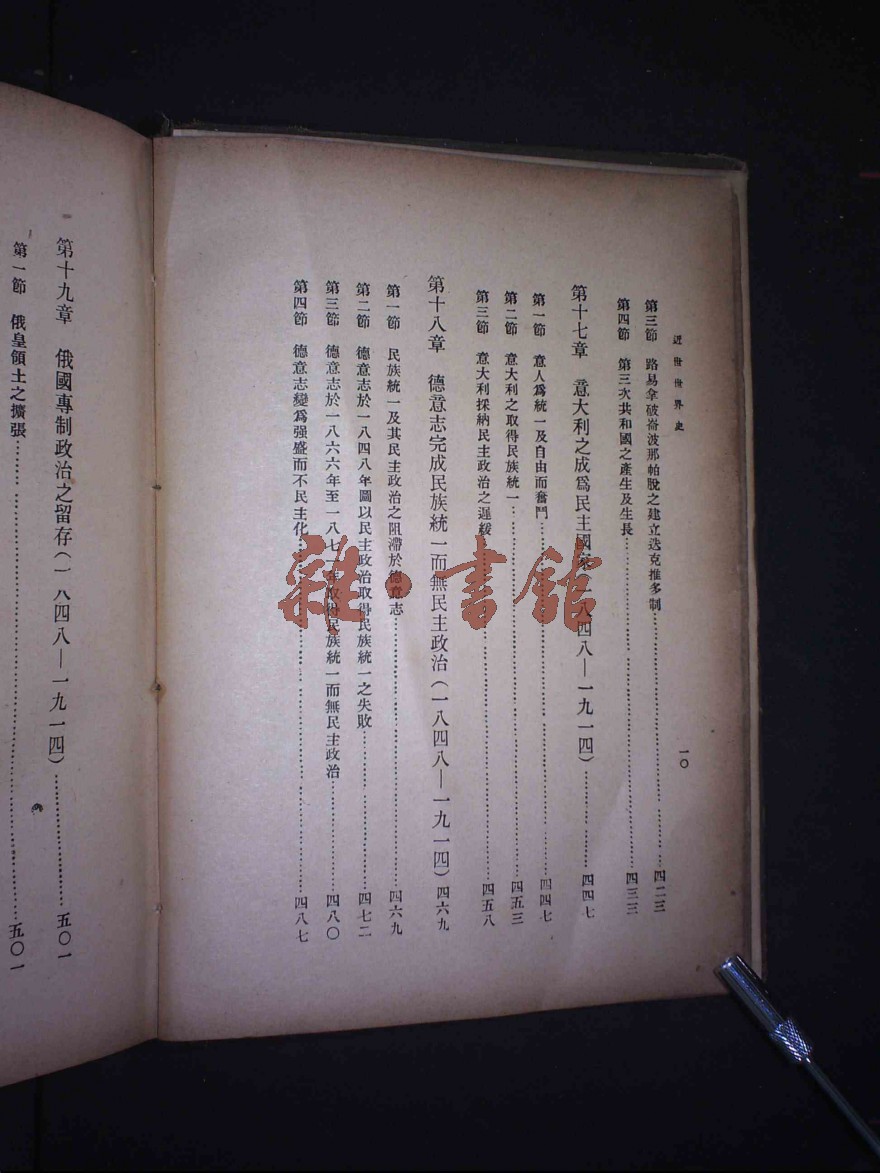 近世世界史
一〇
第三節 路易拿破崙波那帕脫之建立迭克推多制……四二三
第四節 第三次共和國之產生及生長……四三三
第十七章 意大利之成爲民主國家(一八四八—一九一四)……四四七
第一節 意人爲統一及自由而奮鬥……四四七
第二節 意大利之取得民族統一……四五三
第三節 意大利採納民主政治之遲緩……四五八
第十八章 德意志完成民族統一而無民主政治(一八四八—一九一四)四六九
第一節 民族統一及其民主政治之阻滯於德意志……四六九
第二節 德意志於一八四八年圖以民主政治取得民族統一之失敗……四七二
第三節 德意志於一八六六年至一八七一年取得民族統一而無民主政治……四八〇
第四節 德意志變爲强盛而不民主化……四八七
第十九章 俄國專制政治之留存(一八四八—一九一四)……五〇一
第一節 俄皇領土之擴張……五〇一
雜·書館